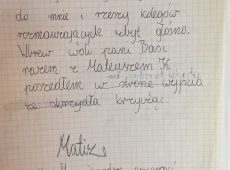 do mnie i reszy kolegów
rozmawiających zbyt głośno.
Wbrew woli pani Basi
razem z Mateuszem K
poszedłem w stronę wyjścia
ze skrzydła krzycząc.
Matis